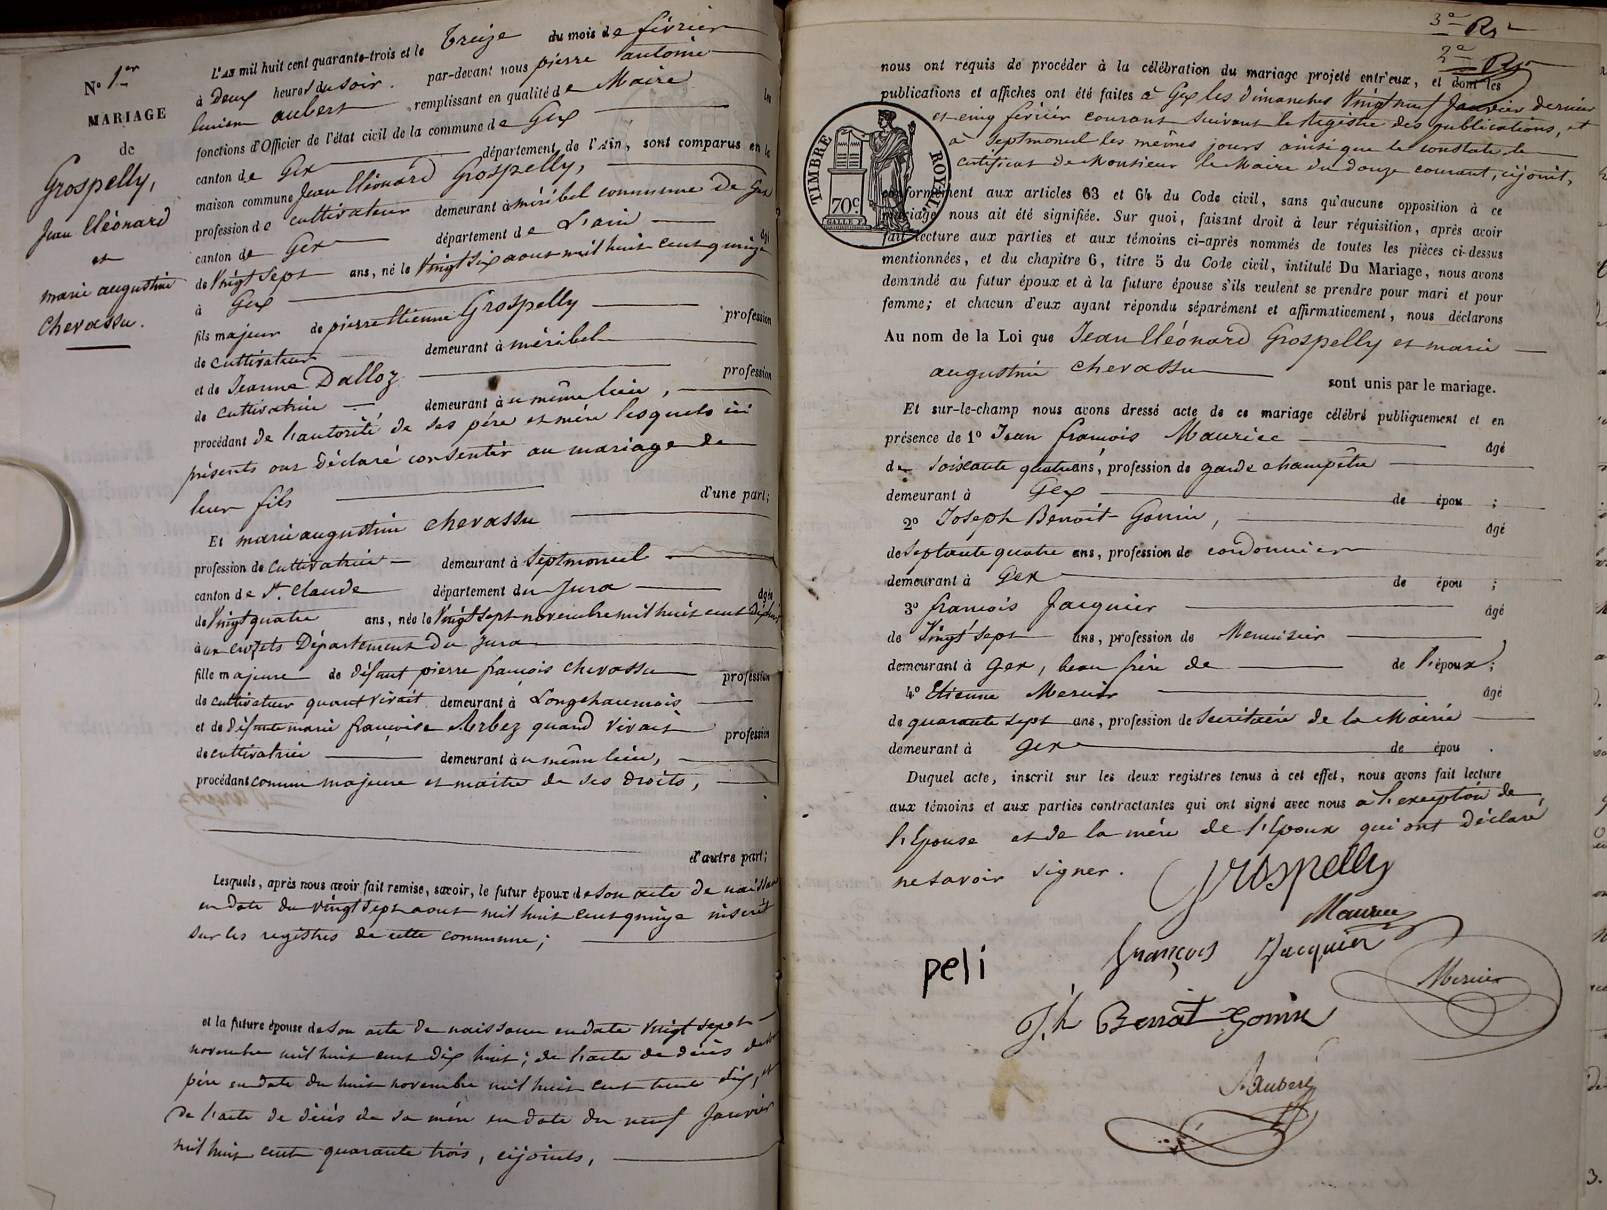 N° 1er
MARIAGE
de
Grospelly,
Jean Cléonard
et
marie augustine
Chevassu.
L'AN mil huit cent quarante-trois et le treize du mois de février
à Deux heures du soir. par-devant nous pierre antoine
lucien aubert remplissant en qualité de Maire les
fonctions d'Officier de l'état civil de la commune de Gex
canton de Gex département de l'Ain, sont comparus en la
maison commune Jean Cléonard Grospelly,
profession de cultivateur demeurant à miribel commune de Gex
canton de Gex département de L'ain
de Vingt Sept ans, né le Vingt Six aout mil huit cent quinze
à Gex
fils majeur de pierre Etienne Grospelly profession
de cultivateur demeurant à miribel
et de Jeanne Dalloz profession
de cultivatrice demeurant à u même lieu,
procédant de l'autorité de ses père et mère lesquels ici
présents ont déclaré consentir au mariage de
leur fils d'une part;
Et marie augustine chevassu
profession de cultivatrice demeurant à Septmoncel
canton de St. Claude département du Jura âgée
de Vingt quatre ans, née le Vingt Sept novembre mil huit cent Dix huit
à ux crozets Département du Jura
fille majeure de défunt pierre françois chevassu profession
de cultivateur quand vivait demeurant à Longchaumois
et de défunte marie françoise Arbez quand vivait profession
de cultivatrice demeurant à u même lieu,
procédant comme majeure et maitre de ses droits,
d'autre part;
Lesquels, après nous avoir fait remise, savoir, le futur époux de son acte de naissance
en date du vingt sept aout mil huit cent quinze inscrit
sur les registres de cette commune;
et la future épouse de son acte de naissance en date vingt sept
novembre mil huit cent dix huit; de l'acte de décès de son
père en date du huit novembre mil huit cent trente dix, et
de l'acte de décès de sa mère en date du neuf Janvier
mil huit cent quarante trois, cijoints,
3e Rx
2e Rx
nous ont requis de procéder à la célébration du mariage projeté entr'eux, et dont les
publications et affiches ont été faites à Gex les dimanches Vingt neuf Janvier dernier
et cinq février courant suivant le Registre des publications, et
à Septmoncel les mêmes jours ainsi que le constate le
certificat de Monsieur le Maire du douze courant, cijoint,
TIMBRE ROYAL
70c
conformément aux articles 63 et 64 du Code civil, sans qu'aucune opposition à ce
mariage nous ait été signifiée. Sur quoi, faisant droit à leur réquisition, après avoir
fait lecture aux parties et aux témoins ci-après nommés de toutes les pièces ci-dessus
mentionnées, et du chapitre 6, titre 5 du Code civil, intitulé Du Mariage, nous avons
demandé au futur époux et à la future épouse s'ils veulent se prendre pour mari et pour
femme; et chacun d'eux ayant répondu séparément et affirmativement, nous déclarons
Au nom de la Loi que Jean Cléonard Grospelly et marie
augustine chevassu sont unis par le mariage.
Et sur-le-champ nous avons dressé acte de ce mariage célébré publiquement et en
présence de 1° Jean françois Maurice âgé
de soixante quatre ans, profession de garde champêtre
demeurant à Gex de épou ;
2° Joseph Benoit-Gonin, âgé
de Septante quatre ans, profession de cordonnier
demeurant à Gex de épou ;
3° françois Jacquier âgé
de Vingt sept ans, profession de Menuisier
demeurant à Gex, beau frère de de l'époux;
4° Etienne Mercier âgé
de quarante sept ans, profession de Secrétaire de la Mairie
demeurant à Gex de épou .
Duquel acte, inscrit sur les deux registres tenus à cet effet, nous avons fait lecture
aux témoins et aux parties contractantes qui ont signé avec nous à l'exception de
l'Epouse et de la mère de l'Epoux qui ont déclaré
ne savoir signer.
Grospelly
Maurice
françois Jacquier
peli
Mercier
J.h Benoit Gonin
Aubert
3.